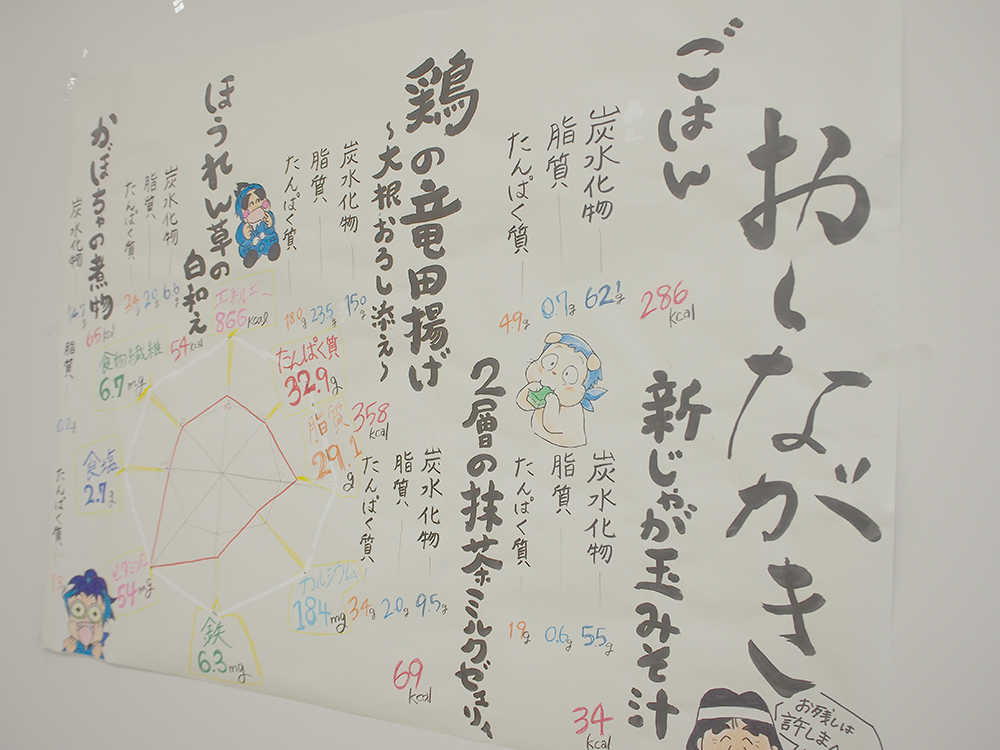 おしながき
ごはん
286kcal
炭水化物 62.1g
脂質 0.7g
たんぱく質 4.9g
新じゃが玉みそ汁
34kcal
炭水化物 5.5g
脂質 0.6g
たんぱく質
鶏の竜田揚げ
〜大根おろし添え〜
358kcal
炭水化物 15.0g
脂質 23.5g
たんぱく質 18.0g
2層の抹茶ミルクゼリー
69kcal
炭水化物 9.5g
脂質 2.0g
たんぱく質 3.4g
ほうれん草の
白和え
54kcal
炭水化物 6.6g
脂質 2.8g
たんぱく質 3.4g
かぼちゃの煮物
65kcal
炭水化物 14.7g
脂質 0.2g
たんぱく質
エネルギー
866kcal
たんぱく質
32.9g
脂質
29.1g
カルシウム
184mg
鉄
6.3mg
ビタミンC
54mg
食塩
2.7g
食物繊維
6.7mg
お残しは
許しま